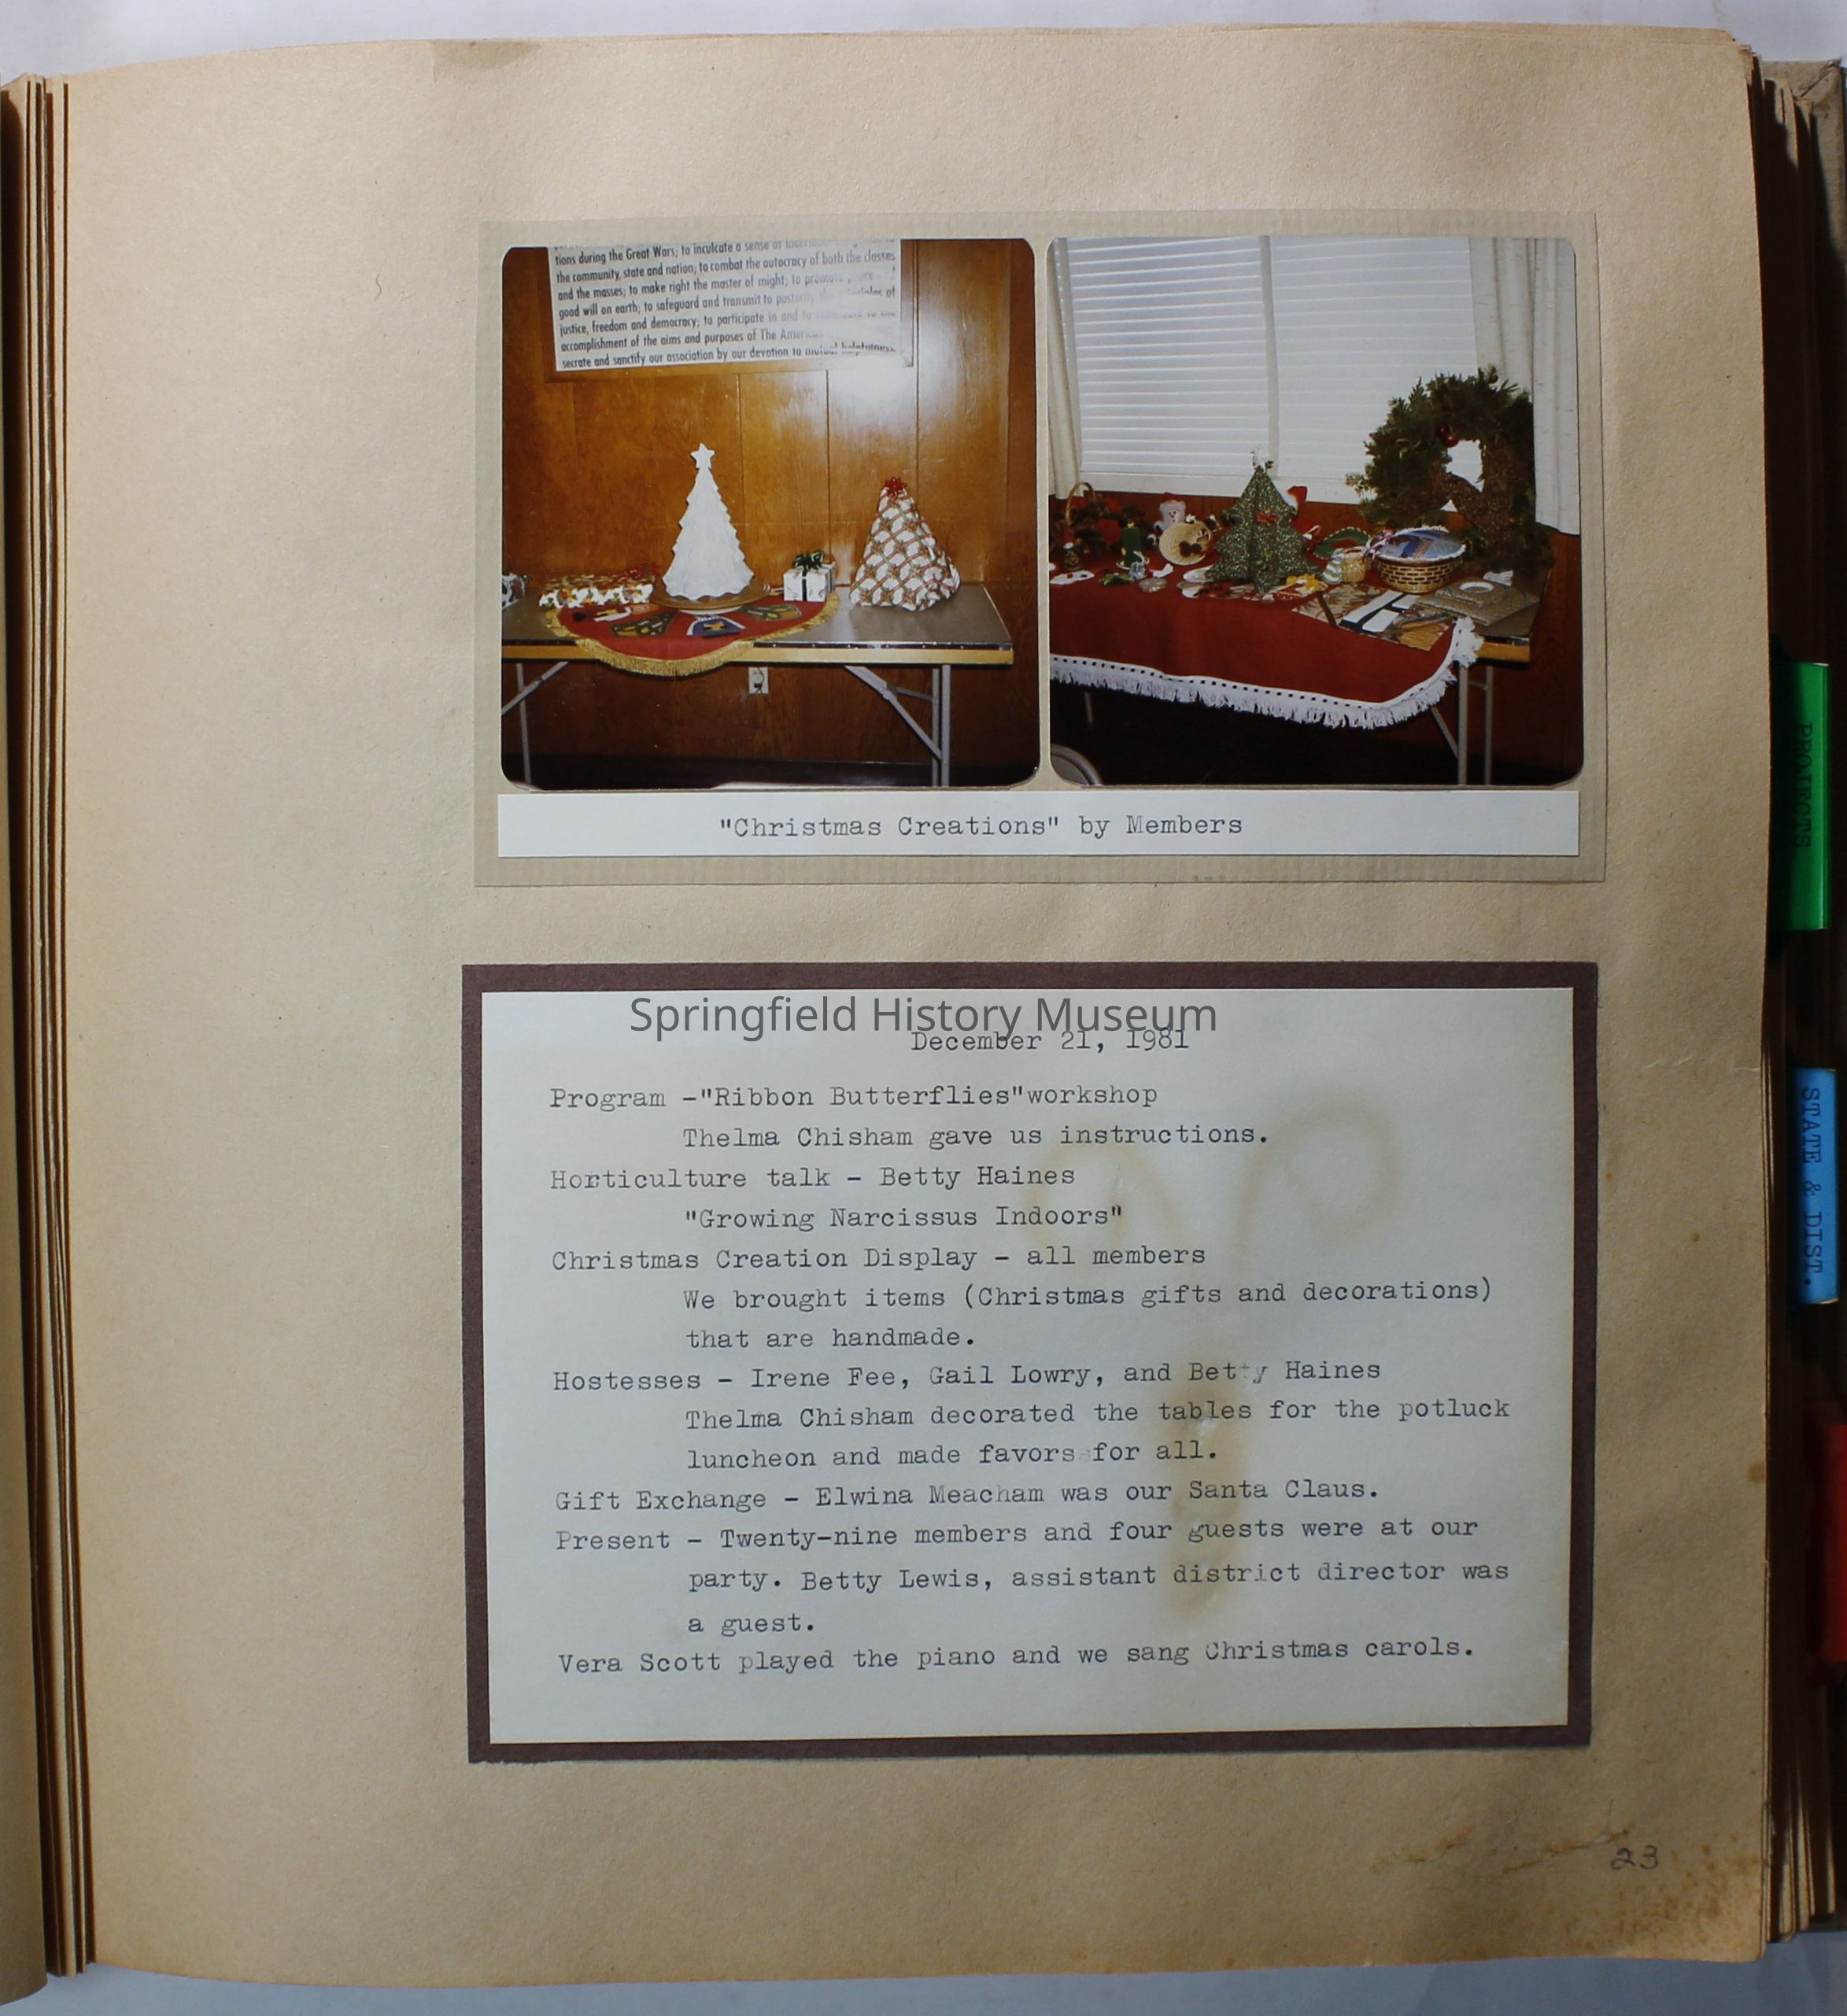 tions during the Great Wars; to inculcate a sense of
the community, state and nation; to combat the autocracy of both the classes
and the masses; to make right the master of might; to promote
good will on earth; to safeguard and transmit to posterity of
justice, freedom and democracy; to participate in and to
accomplishment of the aims and purposes of The
secrate and sanctify our association by our devotion to mutual helpfulness.
"Christmas Creations" by Members
Springfield History Museum
December 21, 1981
Program -"Ribbon Butterflies"workshop
Thelma Chisham gave us instructions.
Horticulture talk - Betty Haines
"Growing Narcissus Indoors"
Christmas Creation Display - all members
We brought items (Christmas gifts and decorations)
that are handmade.
Hostesses - Irene Fee, Gail Lowry, and Betty Haines
Thelma Chisham decorated the tables for the potluck
luncheon and made favors for all.
Gift Exchange - Elwina Meacham was our Santa Claus.
Present - Twenty-nine members and four guests were at our
party. Betty Lewis, assistant district director was
a guest.
Vera Scott played the piano and we sang Christmas carols.
23
PROJECTS
STATE & DIST.